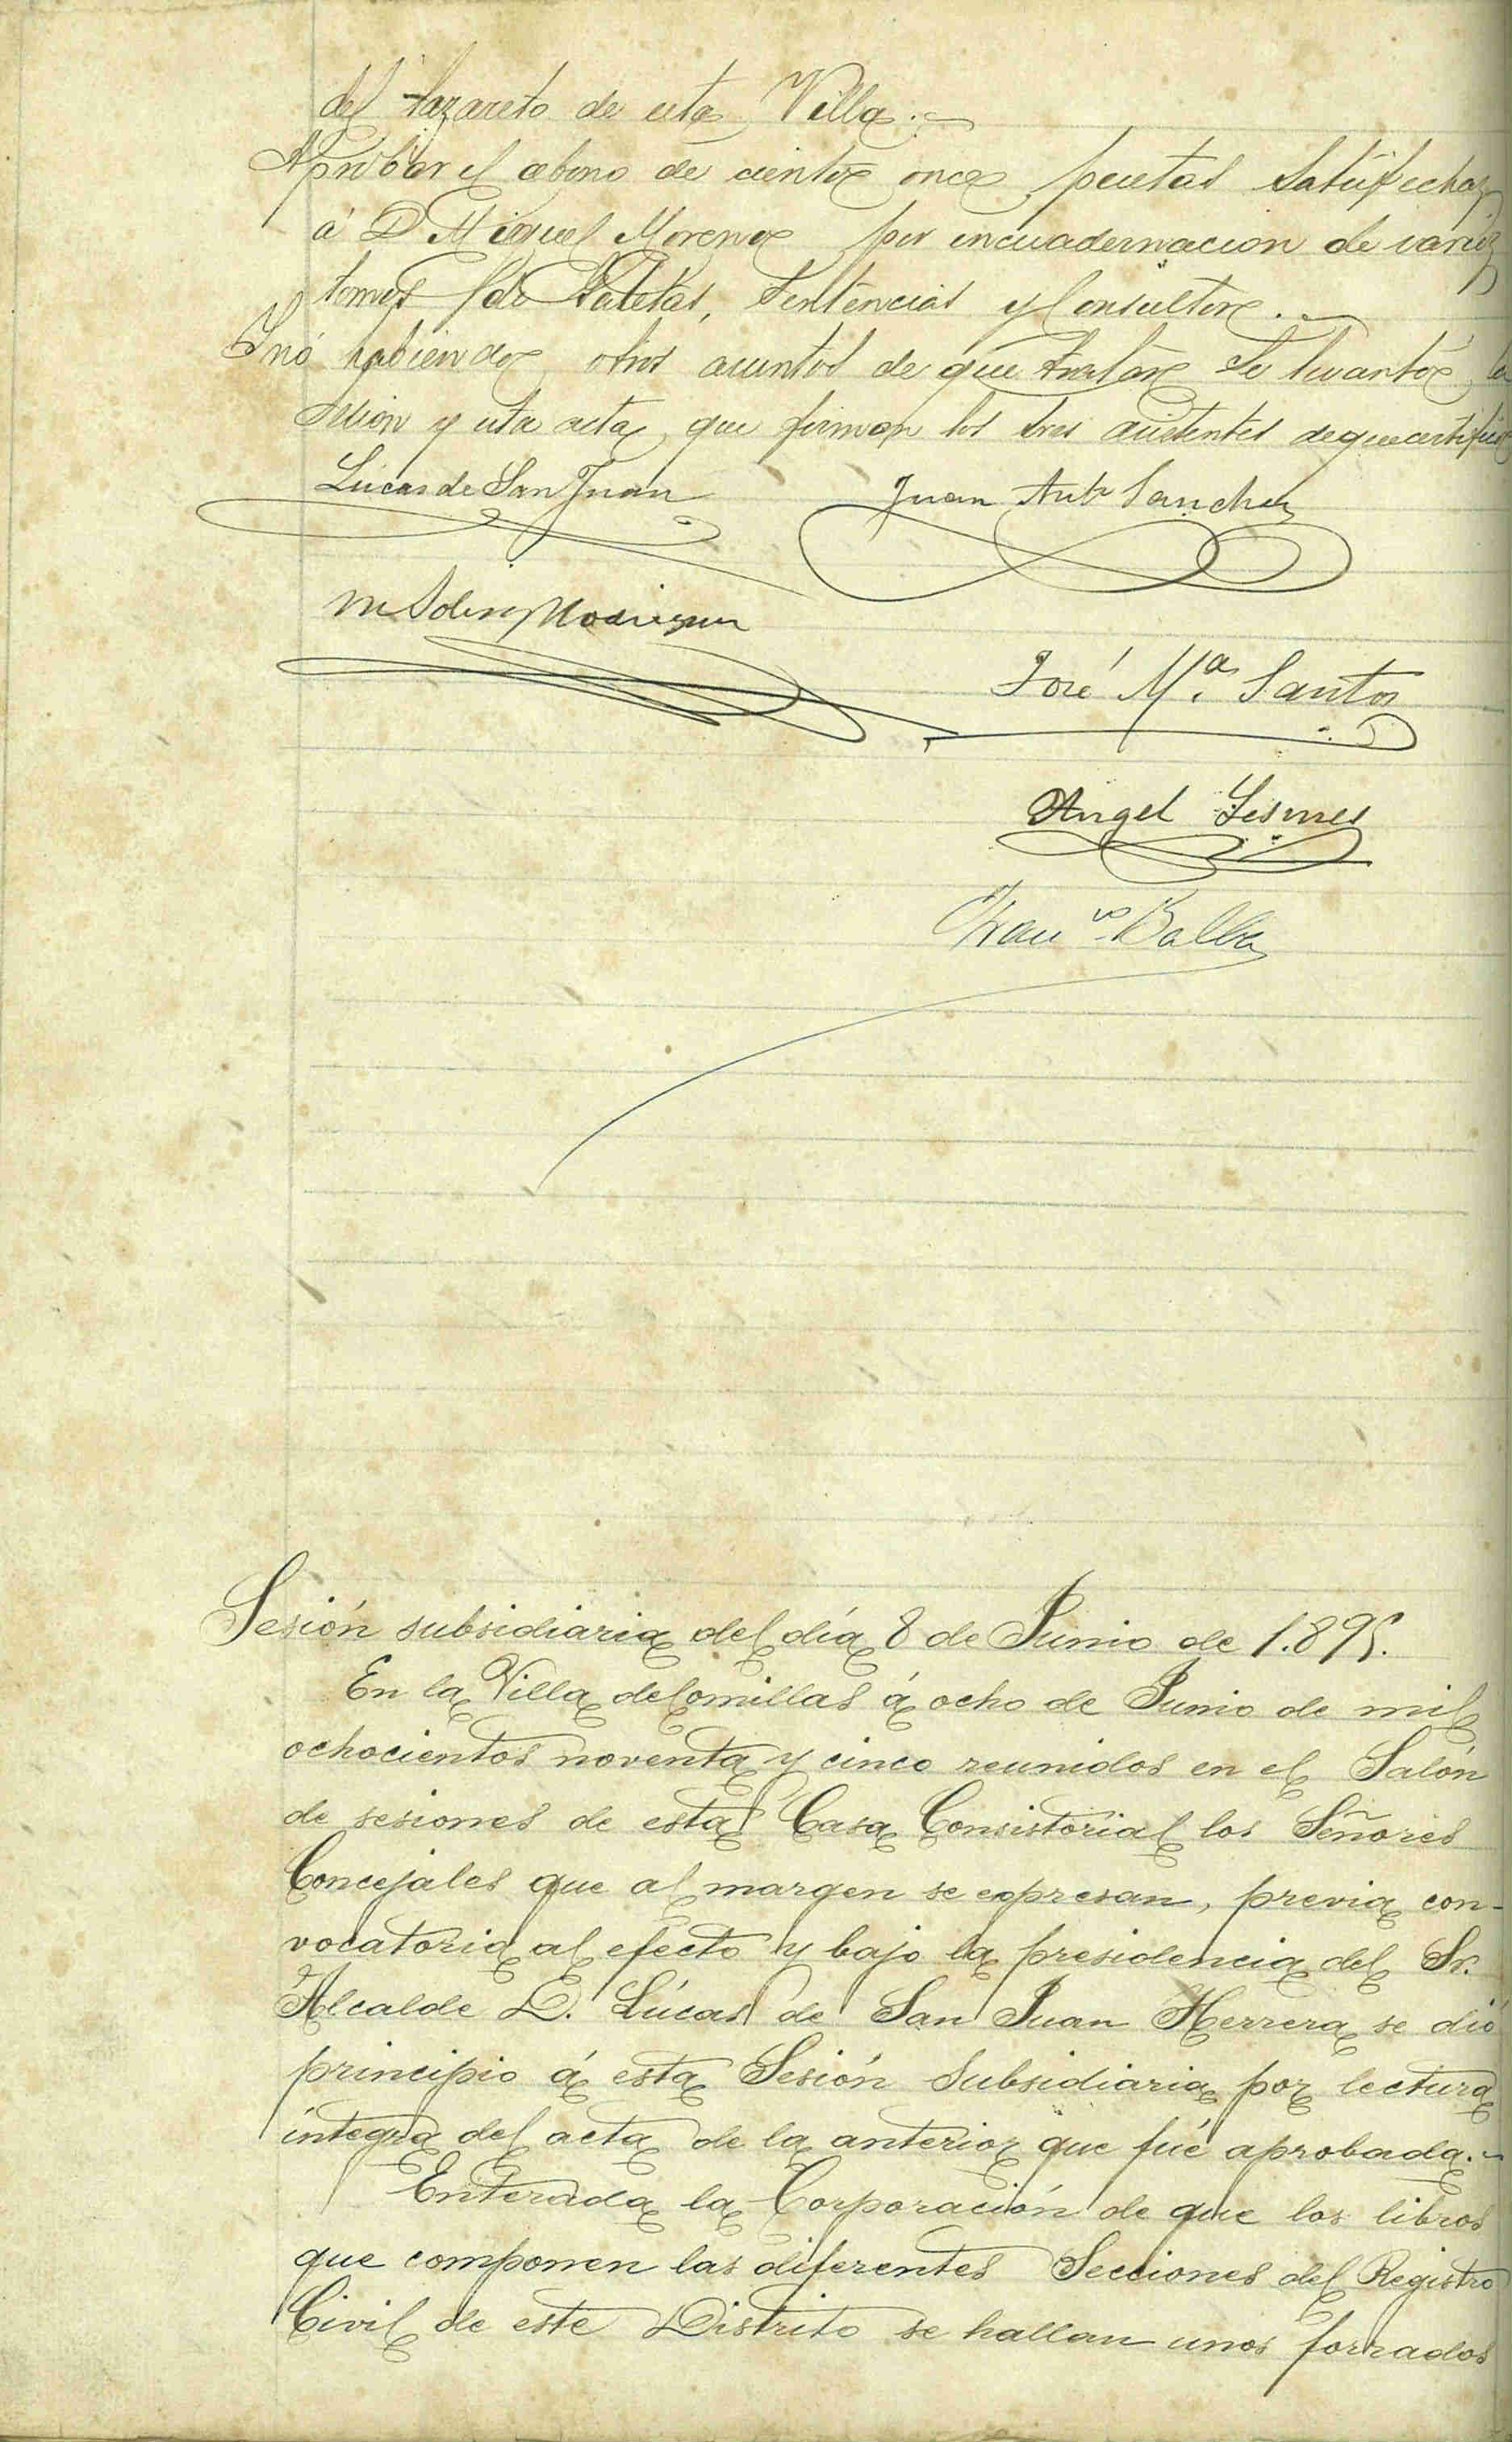 del Lazareto de esta Villa.
Aprobar el abono de ciento once pesetas satisfechas
á D Miguel Moreno por encuadernacion de varios
tomos de Gacetas, Sentencias y Consultor.
Y nó habiendo otros asuntos de que tratar se levantó la
sesion y esta acta, que firman los tres asistentes de que certifico
Lúcas de San Juan
Juan Antº Sanchez
José Mª. Santos
Angel Lesmes
Sesión subsidiaria del día 8 de Junio de 1.895.
En la Villa de Comillas á ocho de Junio de mil
ochocientos noventa y cinco reunidos en el Salón
de sesiones de esta Casa Consistorial los Señores
Concejales que al margen se expresan, previa con-
vocatoria al efecto y bajo la presidencia del Sr.
Alcalde D. Lúcas de San Juan Herrera se dió
principio á esta Sesión Subsidiaria por lectura
íntegra del acta de la anterior que fué aprobada.
Enterada la Corporación de que los libros
que componen las diferentes Secciones del Registro
Civil de este Distrito se hallan unos forrados